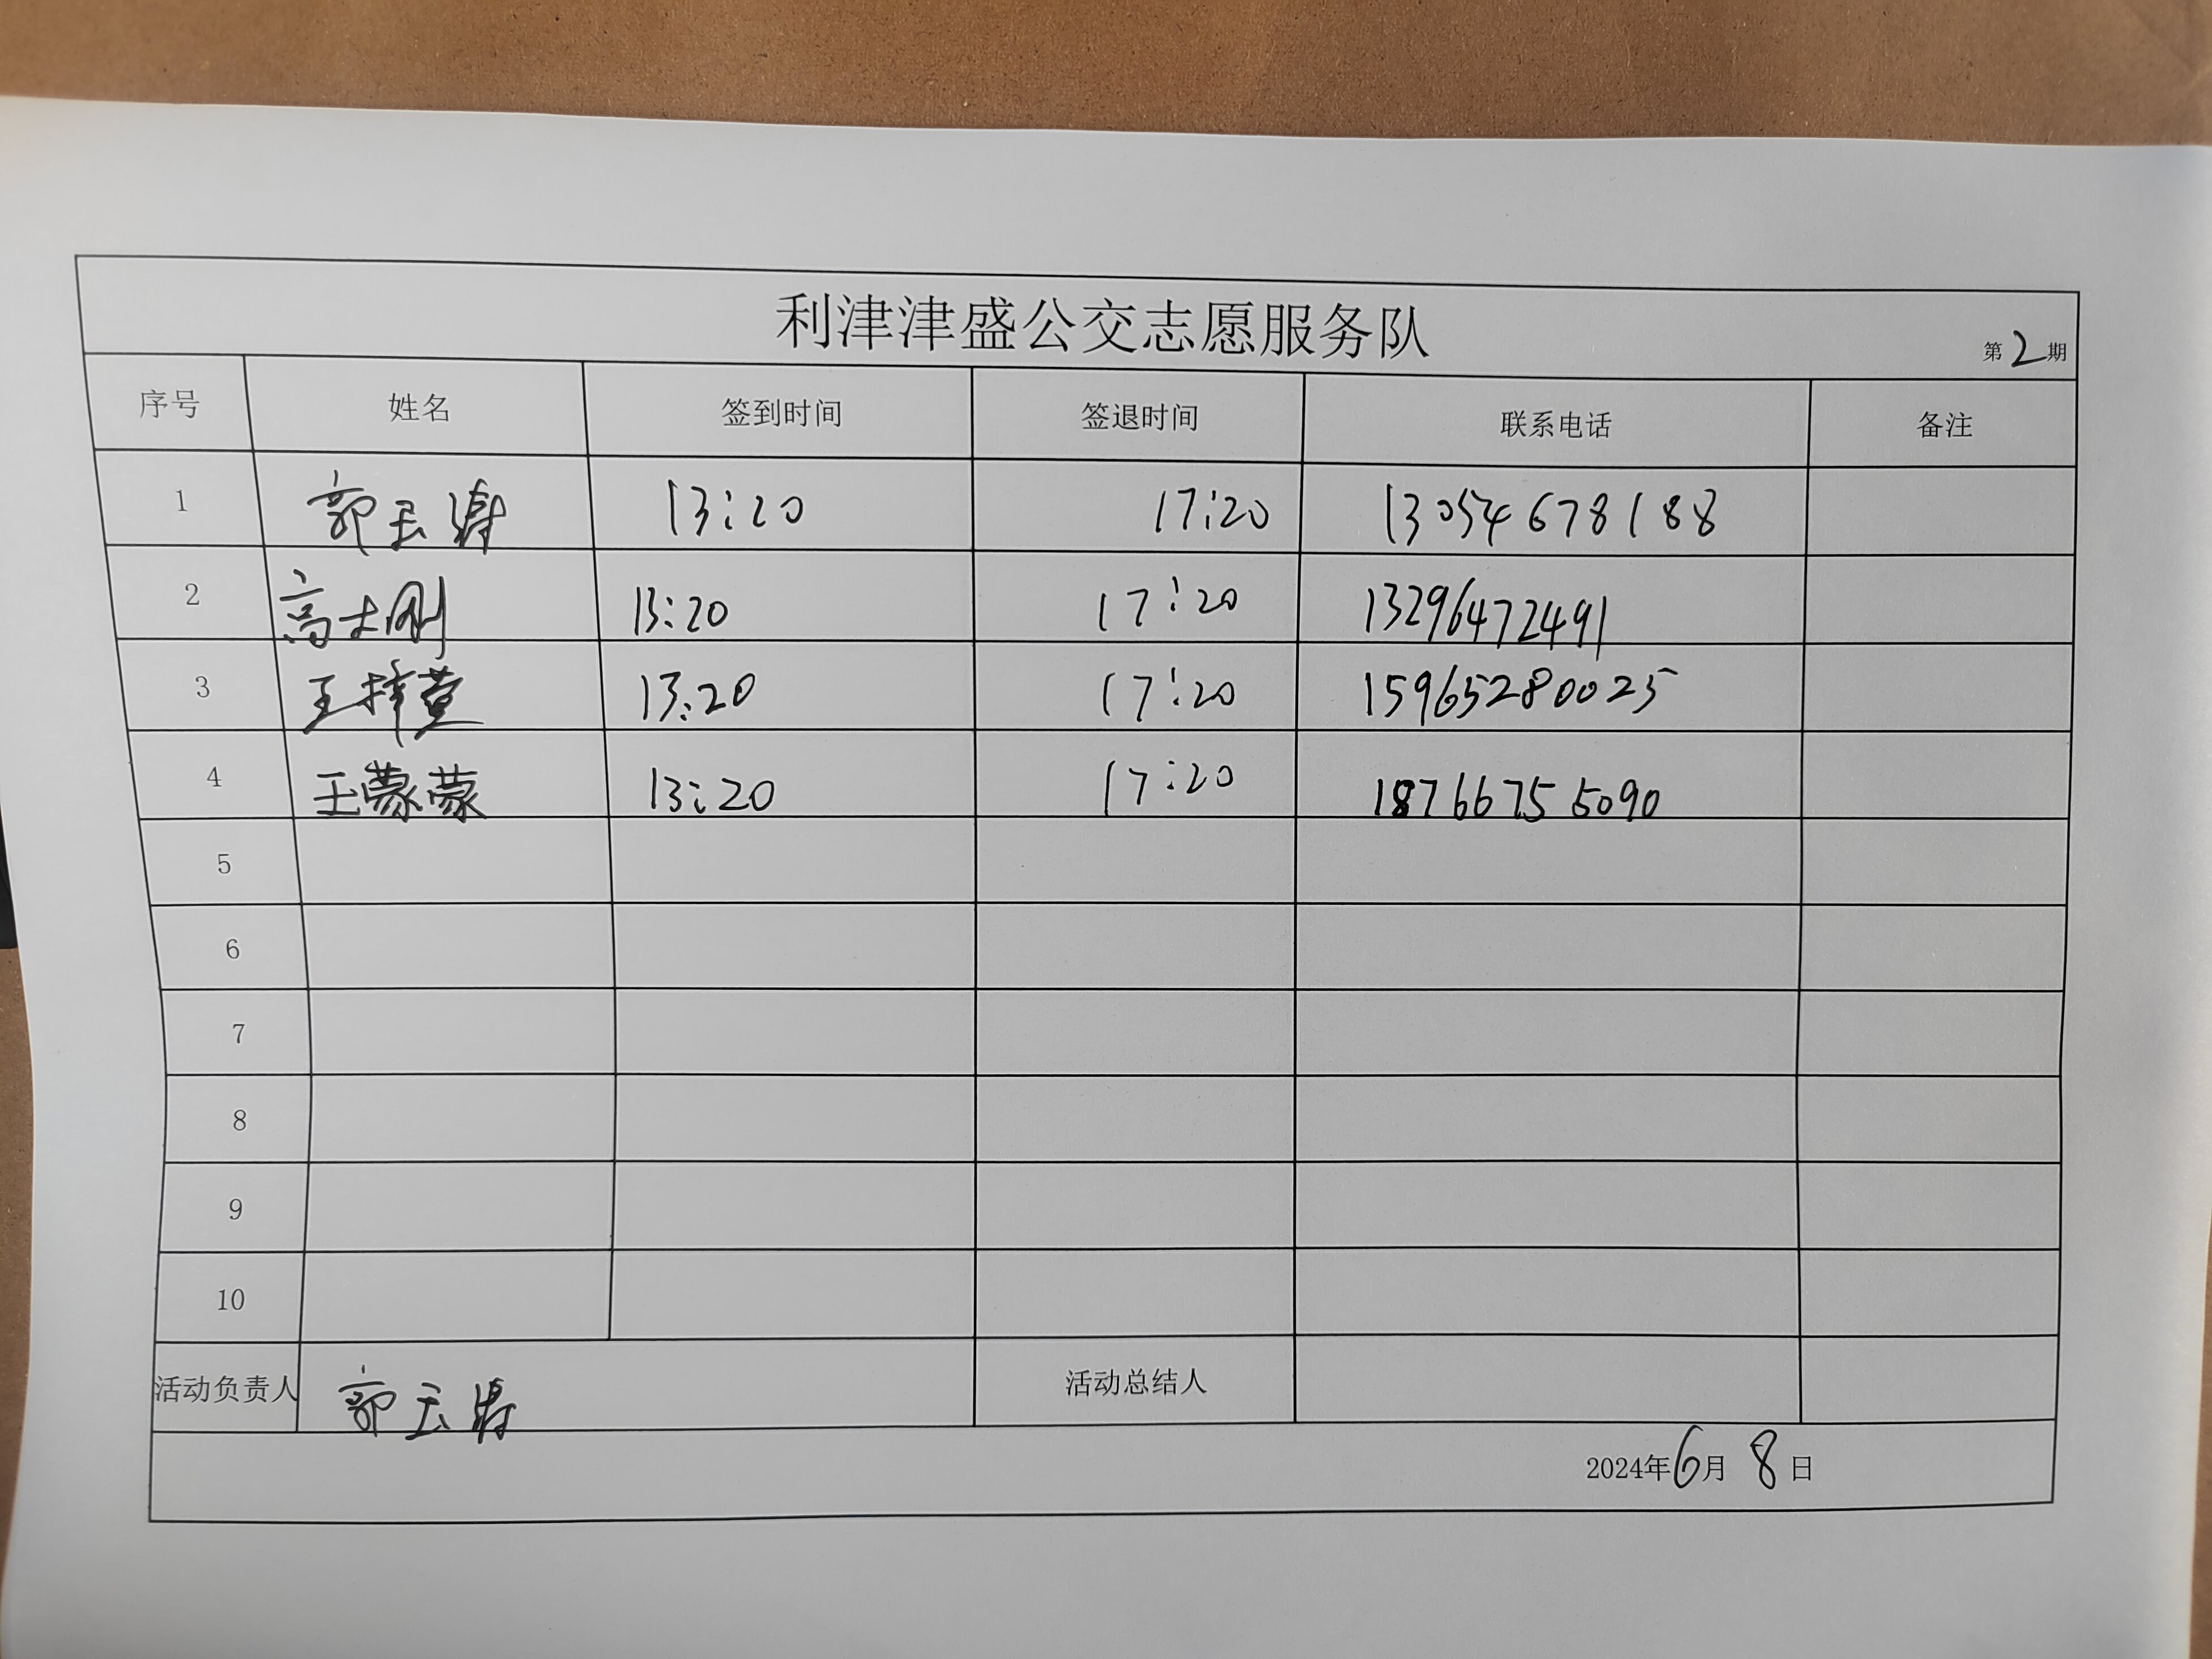 利津津盛公交志愿服务队
第2期
序号 姓名 签到时间 签退时间 联系电话 备注
1 郭玉涛 13:20 17:20 13054678188
2 高士刚 13:20 17:20 13296472491
3 王梓萱 13:20 17:20 15965280025
4 王蒙蒙 13:20 17:20 18766755090
5
6
7
8
9
10
活动负责人 郭玉涛 活动总结人
2024年6月8日